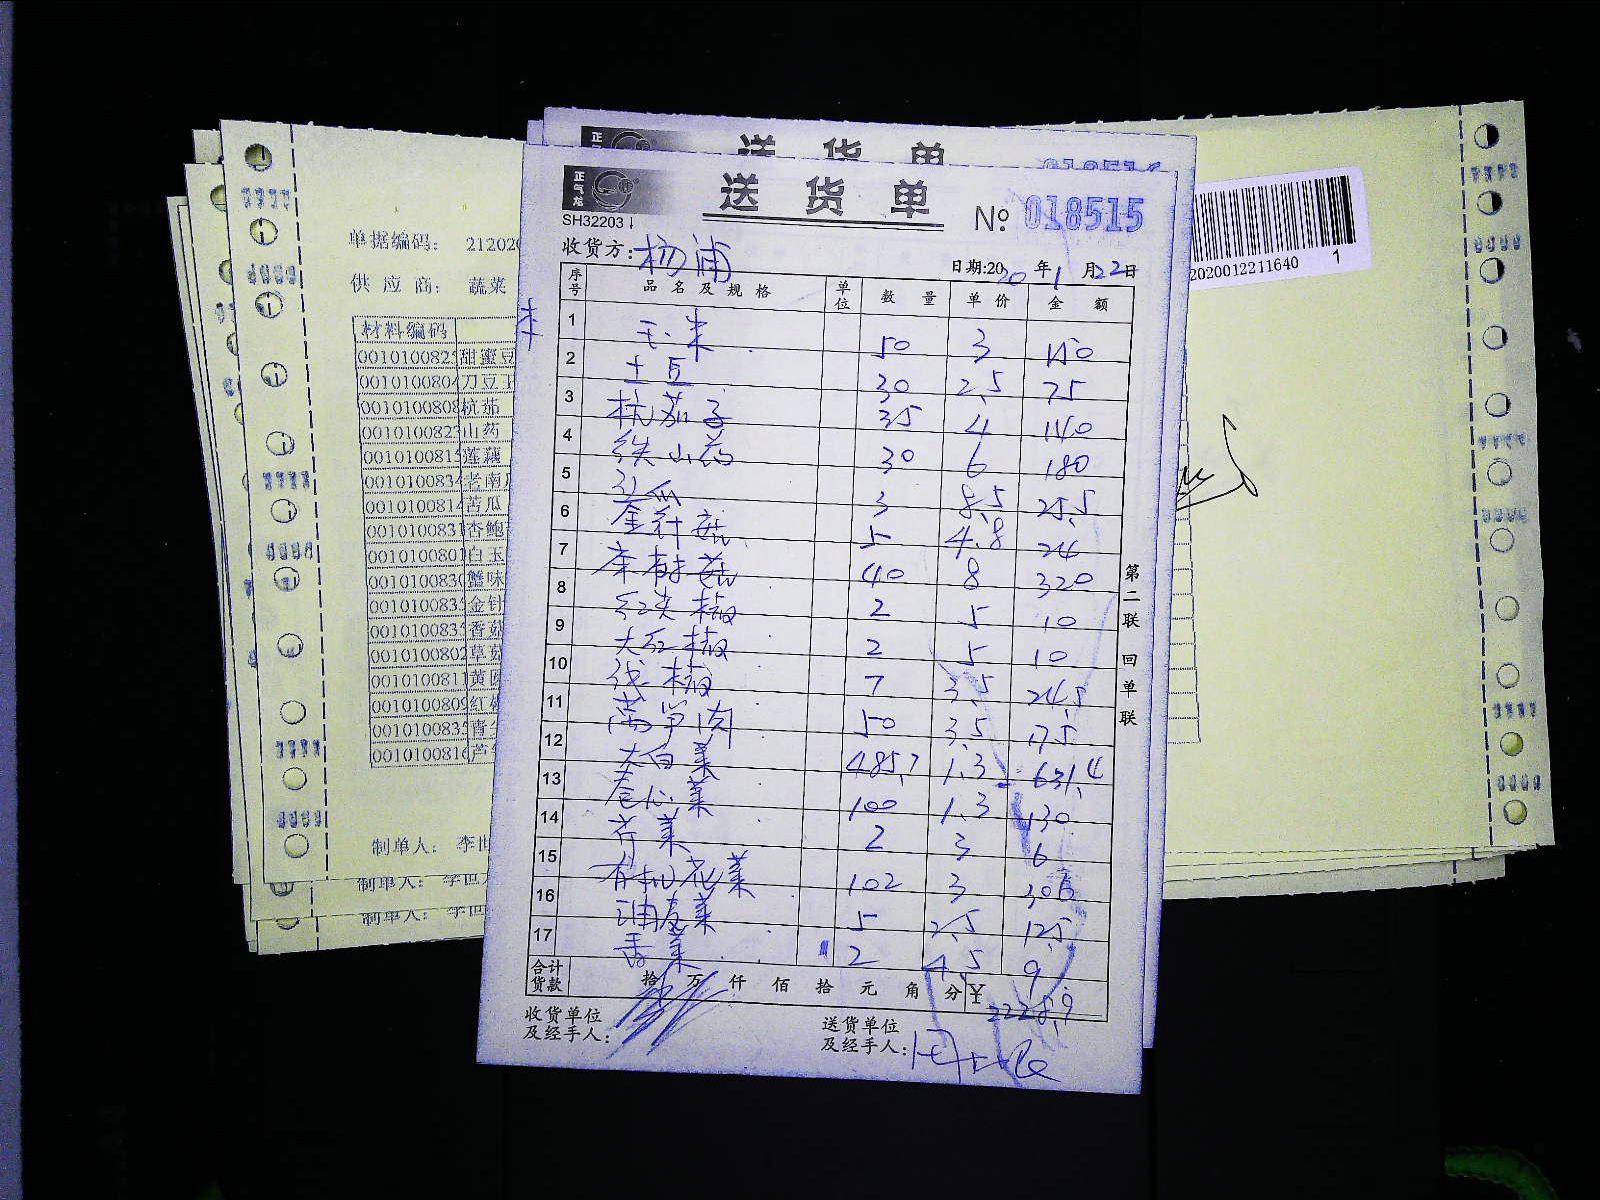 送货单
018516
正气龙
送货单
SH32203
№ 018515
收货方: 杨浦
日期:2020年1月22日
序号 品名及规格 单位 数量 单价 金额
1 玉米 50 3 150
2 土豆 30 2.5 75
3 杭茄子 35 4 140
4 铁山药 30 6 180
5 瓜 3 8.5 25.5
6 金针菇 5 4.8 24
7 茶树菇 40 8 320
8 红尖椒 2 5 10
9 大红椒 2 5 10
10 线椒 7 3.5 24.5
11 莴笋肉 50 3.5 175
12 大白菜 485.7 1.3 631.4
13 卷心菜 100 1.3 130
14 芹菜 2 3 6
15 有机花菜 102 3 306
16 油麦菜 5 2.5 12.5
17 香菜 2 4.5 9
合计货款 拾 万 仟 佰 拾 元 角 分 ¥ 2228.9
收货单位及经手人:
送货单位及经手人:
第二联 回单联
单据编码: 212020
供应商: 蔬菜
材料编码
001010082 甜蜜豆
001010080 刀豆
001010080 杭茄
001010082 山药
001010081 莲藕
001010083 老南
001010081 苦瓜
001010083 杏鲍
001010080 白玉
001010083 蟹味
001010083 金针
001010083 香菇
001010080 草菇
001010081 黄
001010080 红
001010083 青尖
001010081 芦
制单人: 李世
制单人: 李世
制单人: 李世
2020012211640 1